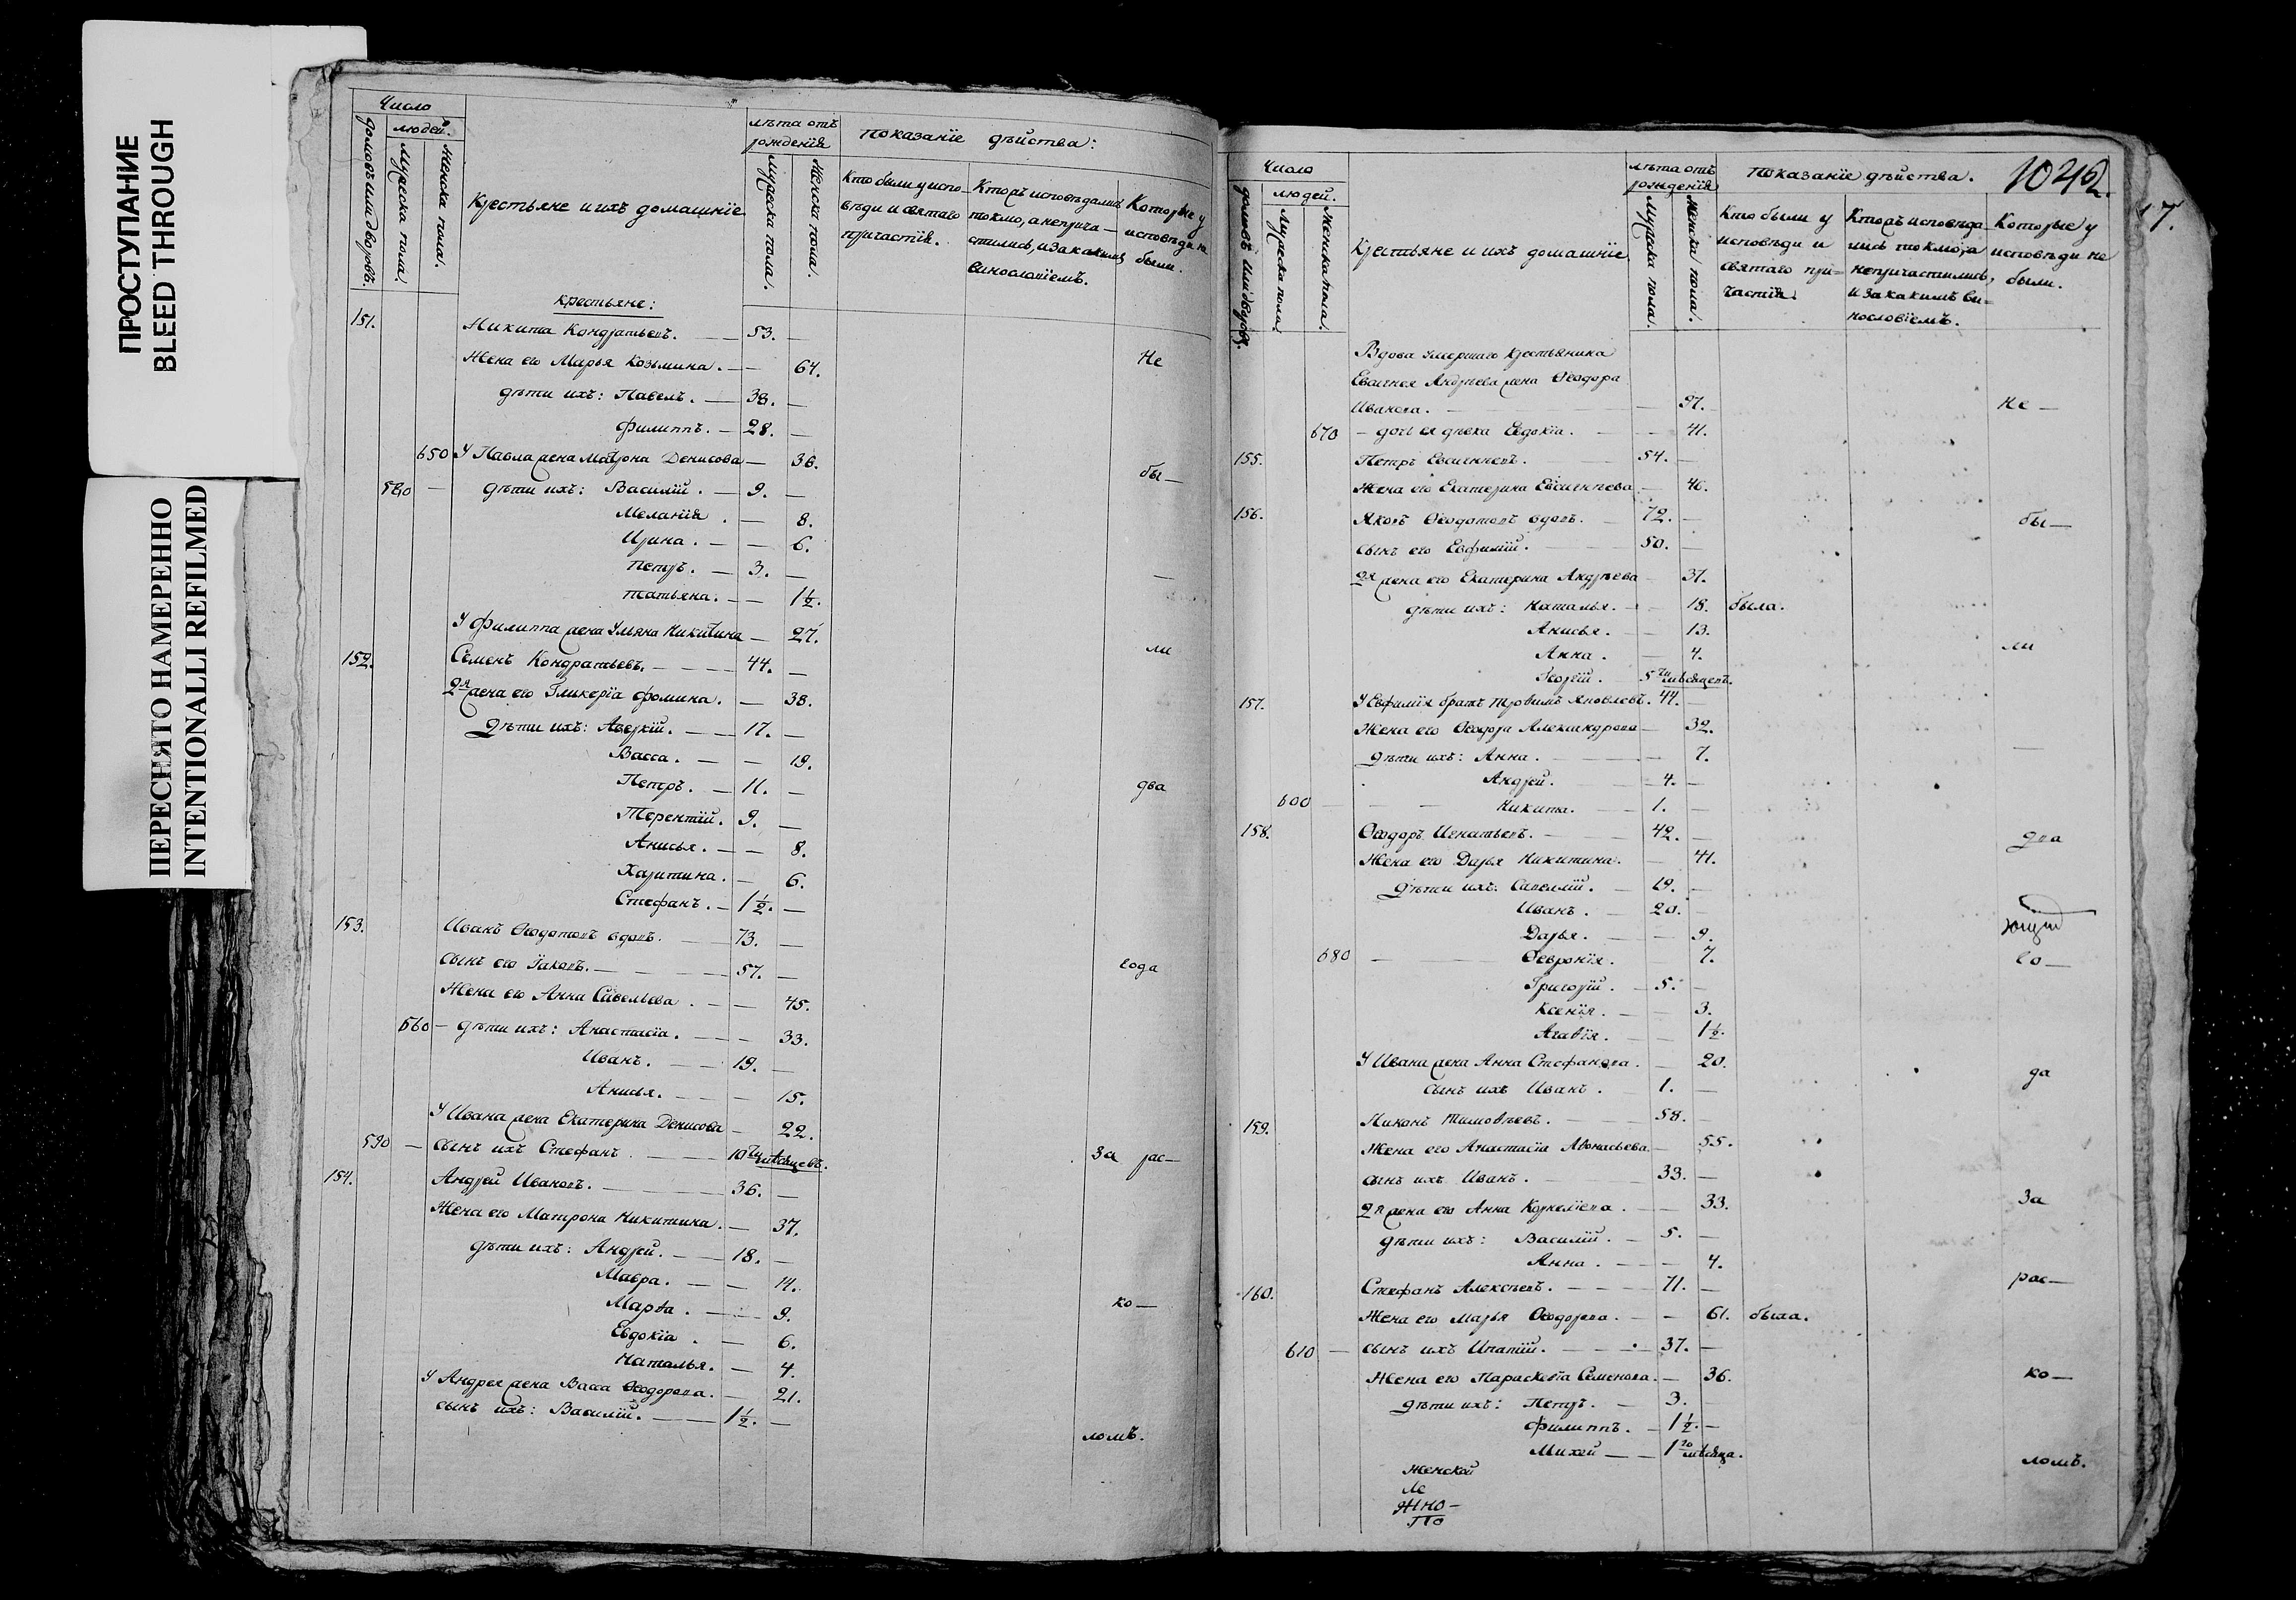 ПРОСТУПАНИЕ
BLEED THROUGH
ПЕРЕСНЯТО НАМЕРЕННО
INTENTIONALLI REFILMED
Число
людей.
домовъ или дворовъ.
Мужеска пола.
Женска пола.
Крестьяне и ихъ домашніе
лѣта отъ
рожденія
Мужеска пола.
Женска пола.
показаніе дѣйства:
Кто были у испо-
вѣди и святаго
причастія.
Которые у
исповѣди не
были.
крестьяне:
151. Никита Кондратьевъ. 53.
Жена его Марья Козьмина. 64. Не
дѣти ихъ: Павелъ. 38.
Филиппъ. 28.
650 У Павла жена Матрона Денисова 36.
580 дѣти ихъ: Василій. 9. бы-
Меланія. 8.
Ирина. 6.
Петръ. 3.
Татьяна. 1½.
У Филиппа жена Ульяна Никитина 27. ли
152. Семенъ Кондратьевъ. 44.
2я жена его Гликерія Фомина. 38.
Дѣти ихъ: Аверкій. 17.
Васса. 19.
Петръ. 11. два
Терентій. 9.
Анисья. 8.
Харитина. 6.
Стефанъ. 1½.
153. Иванъ Ѳедотовъ вдовъ. 73.
сынъ его Іаковъ. 57. года
Жена его Анна Савельева. 45.
660 дѣти ихъ: Анастасія. 33.
Иванъ. 19.
Анисья. 15.
У Ивана жена Екатерина Денисова 22.
590 сынъ ихъ Стефанъ. 10ти мѣсяцевъ. за рас-
154. Андрей Ивановъ. 36.
Жена его Матрона Никитина. 37.
дѣти ихъ: Андрей. 18.
Мавра. 14.
Марѳа. 9. ко-
Евдокія. 6.
Наталья. 4.
У Андрея жена Васса Ѳедорова. 21.
сынъ ихъ: Василій. 1½.
ломъ.
Число
людей.
домовъ или дворовъ.
Мужеска пола.
Женска пола.
Крестьяне и ихъ домашніе
лѣта отъ
рожденія
Мужеска пола.
Женска пола.
показаніе дѣйства.
Кто были у
исповѣди и
святаго при-
частія.
Которые у
исповѣди не
были.
Вдова умершаго крестьянина
Евсигнея Андреева жена Ѳеодора
Иванова. 97. Не-
670 дочь ея дѣвка Евдокія. 41.
155. Петръ Евсигнеевъ. 54.
Жена его Екатерина Евсигнеева 46.
156. Яковъ Ѳедотовъ вдовъ. 72. бы-
сынъ его Евфимій. 50.
2я жена его Екатерина Андреева 37.
дѣти ихъ: Наталья. 18. была.
Анисья. 13.
Анна. 4. ли
Георгій. 5ти мѣсяцевъ.
157. У Евфимія братъ Трофимъ Яковлевъ. 44.
Жена его Ѳедора Александрова 32.
дѣти ихъ: Анна. 7.
Андрей. 4.
600 Никита. 1.
158. Ѳедоръ Игнатьевъ. 42. два
Жена его Дарья Никитина. 41.
дѣти ихъ: Савелій. 19.
Иванъ. 20.
Дарья. 9.
680 Ѳевронія. 7. го-
Григорій. 5.
Ксенія. 3.
Агаѳія. 1½.
У Ивана жена Анна Стефанова. 20.
сынъ ихъ Иванъ. 1. да
159. Никонъ Тимоѳеевъ. 58.
Жена его Анастасія Аѳонасьева 55.
сынъ ихъ Иванъ. 33.
2я жена его Анна Корнеліева. 33. За
дѣти ихъ: Василій. 5.
Анна. 4.
160. Стефанъ Алексѣевъ. 71. рас-
Жена его Марья Ѳедорова. 61. была.
610 сынъ ихъ Ипатій. 37.
Жена его Параскевія Семенова. 36. ко-
дѣти ихъ: Петръ. 3.
Филиппъ. 1½.
Михей 1го мѣсяца.
ломъ.
Женской